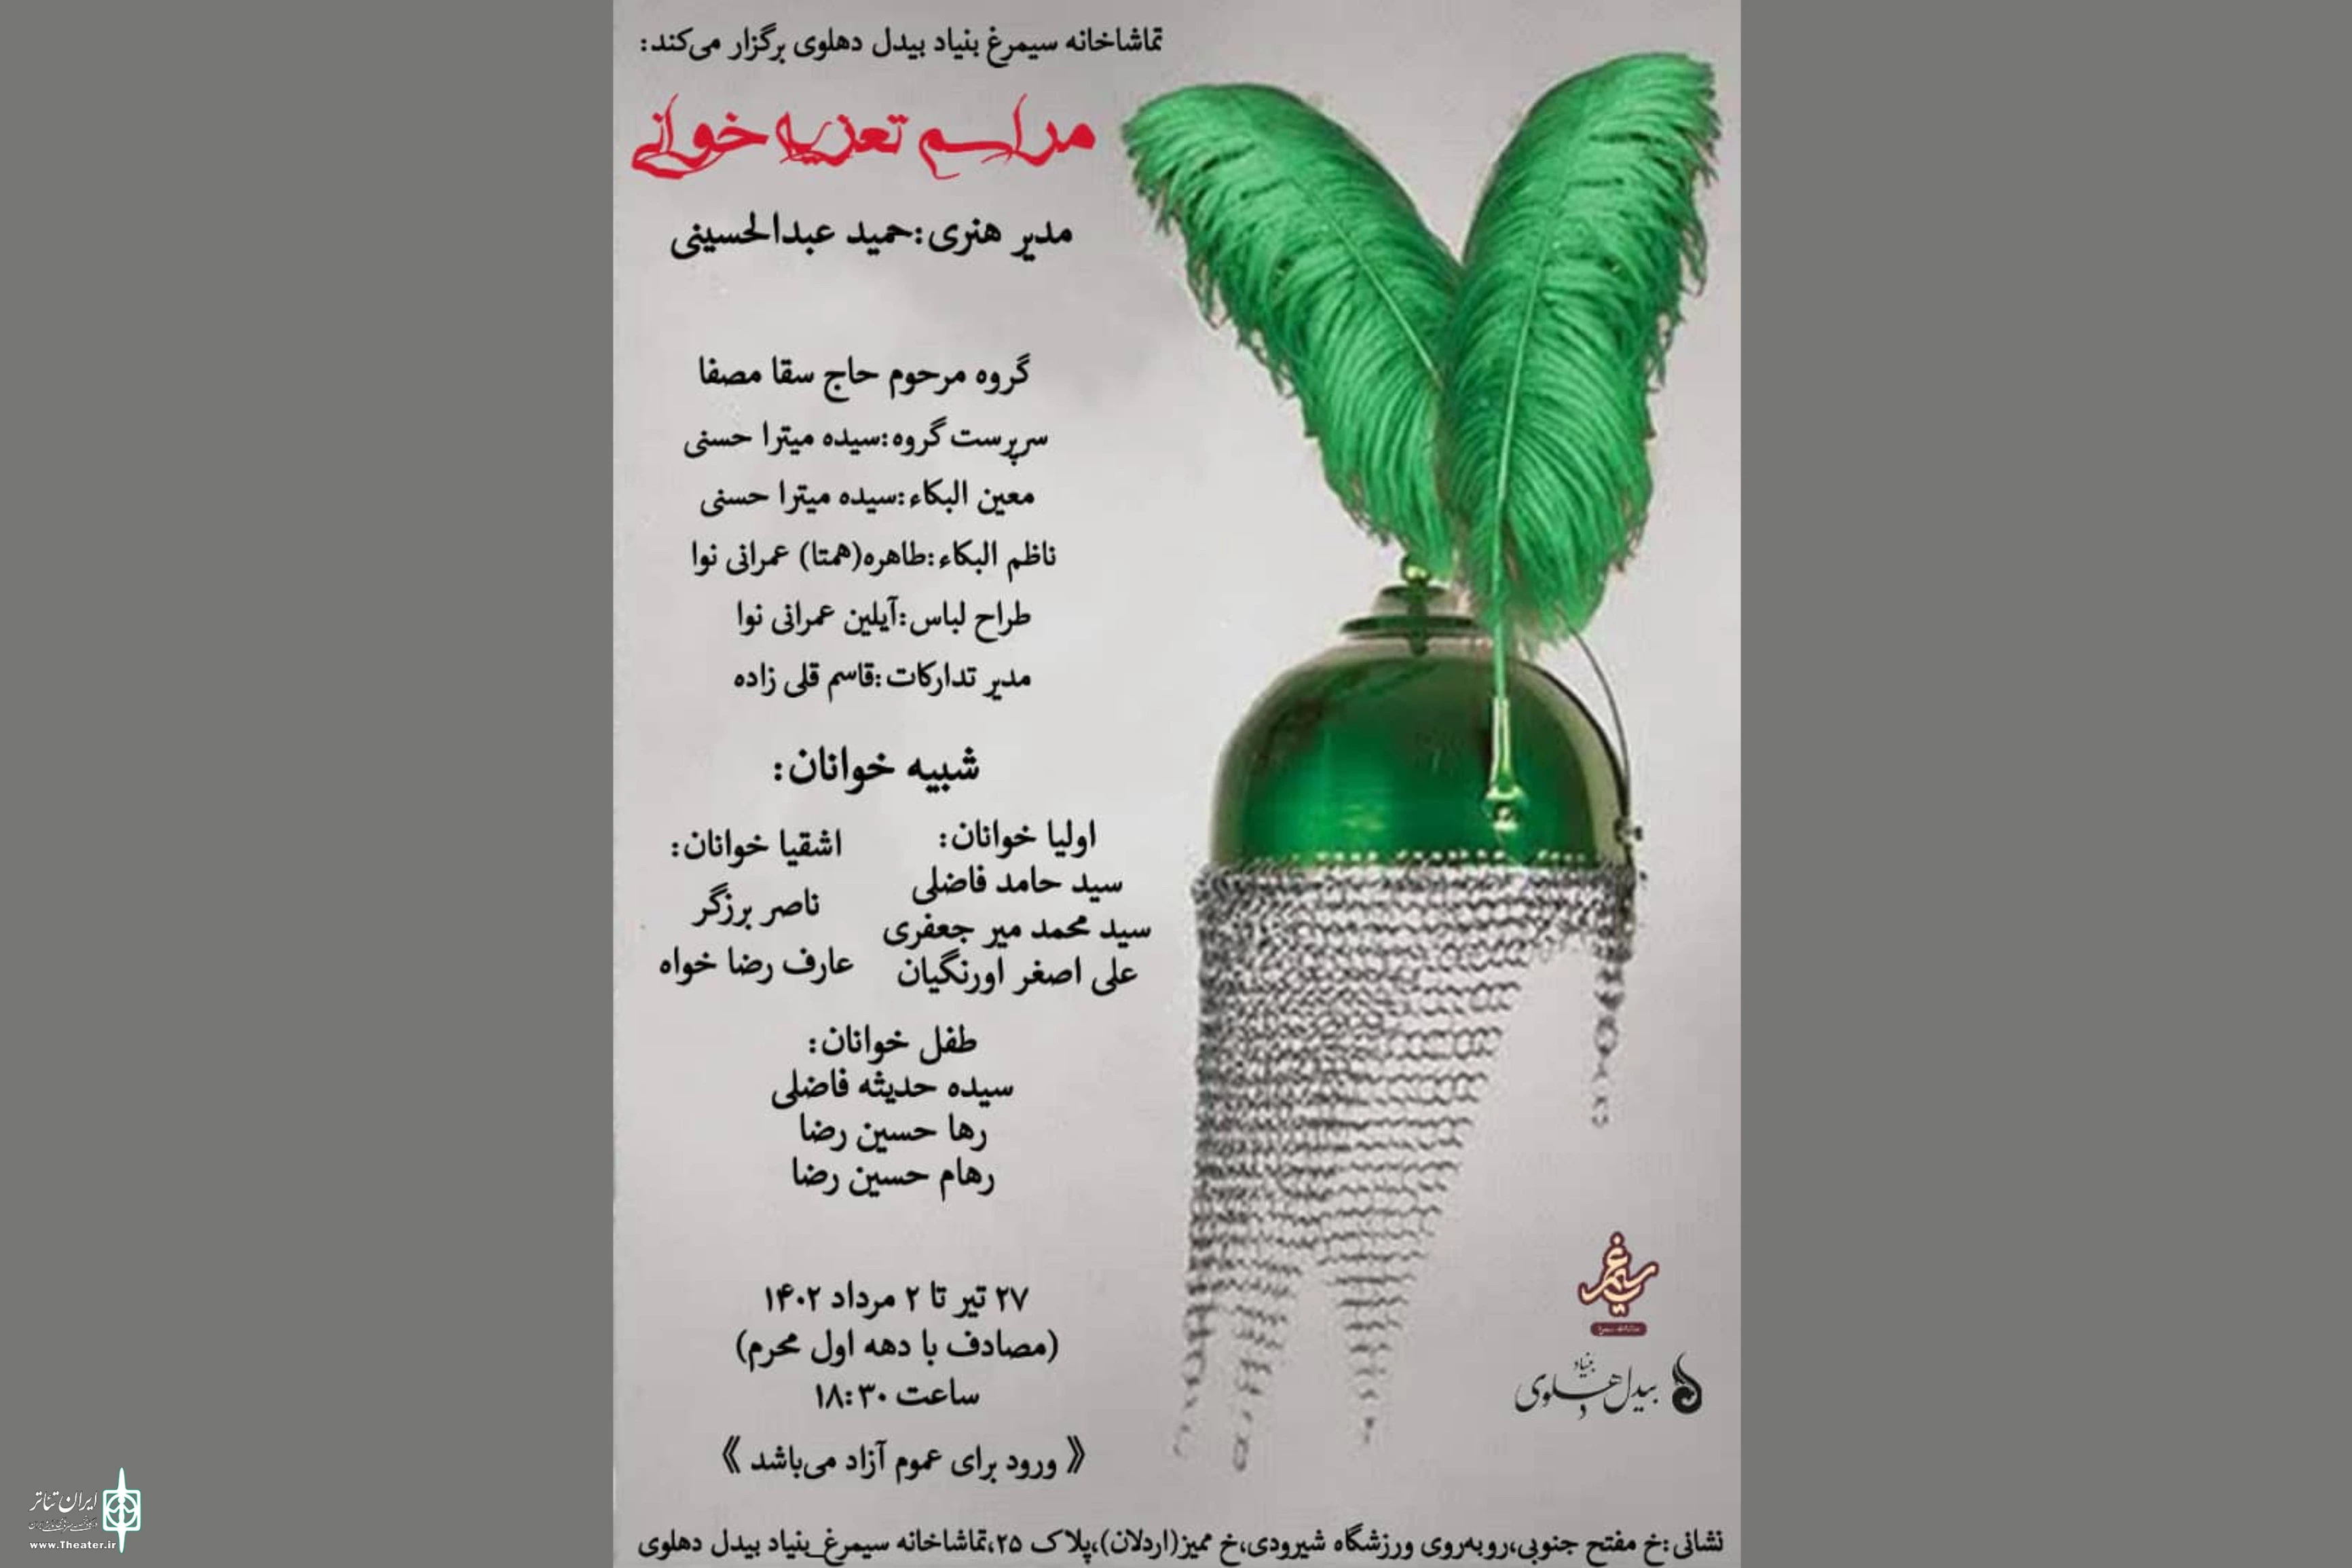 تماشاخانه سیمرغ بنیاد بیدل دهلوی برگزار می‌کند:
مراسم تعزیه خوانی
مدیر هنری:حمید عبدالحسینی
گروه مرحوم حاج سقا مصفا
سرپرست گروه:سیده میترا حسنی
معین البکاء:سیده میترا حسنی
ناظم البکاء:طاهره(همتا) عمرانی نوا
طراح لباس:آیلین عمرانی نوا
مدیر تدارکات:قاسم قلی زاده
شبیه خوانان:
اولیا خوانان:
سید حامد فاضلی
سید محمد میر جعفری
علی اصغر اورنگیان
اشقیا خوانان:
ناصر برزگر
عارف رضا خواه
طفل خوانان:
سیده حدیثه فاضلی
رها حسین رضا
رهام حسین رضا
۲۷ تیر تا ۲ مرداد ۱۴۰۲
(مصادف با دهه اول محرم)
ساعت ۱۸:۳۰
《 ورود برای عموم آزاد می‌باشد 》
سیمرغ
بنیاد
بیدل دهلوی
نشانی:خ مفتح جنوبی،روبه‌روی ورزشگاه شیرودی،خ ممیز(اردلان)،پلاک ۲۵،تماشاخانه سیمرغ_بنیاد بیدل دهلوی
ایران تئاتر
www.Theater.ir